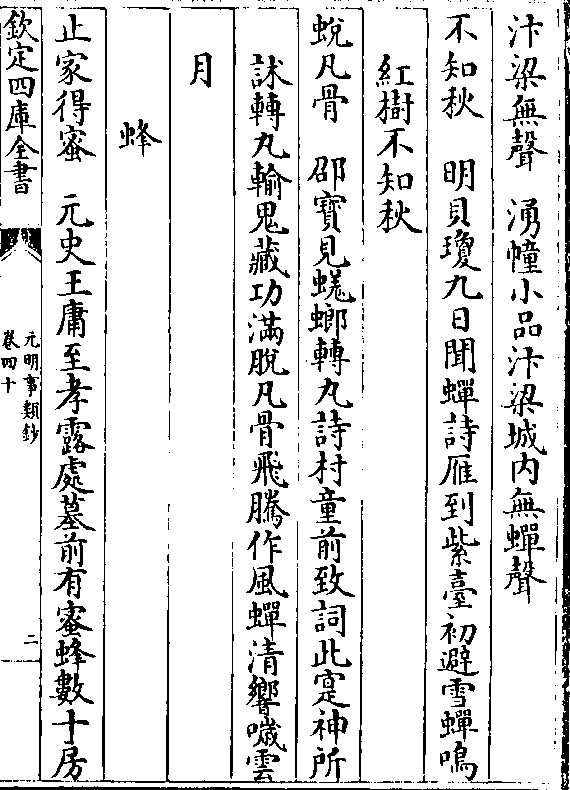 汴梁無聲　湧幢小品汴梁城内無蟬聲
不知秋　明貝瓊九日聞蟬詩雁到紫臺初避雪蟬鳴
紅樹不知秋
蛻凡骨　邵寶見蜣螂轉丸詩村童前致詞此寔神所
訹轉丸輸鬼藏功滿脫凡骨飛騰作風蟬清響噦雲
月
蜂
止家得蜜　元史王庸至孝露處墓前有蜜蜂數十房
欽定四庫全書
元明事類鈔
卷四十
二